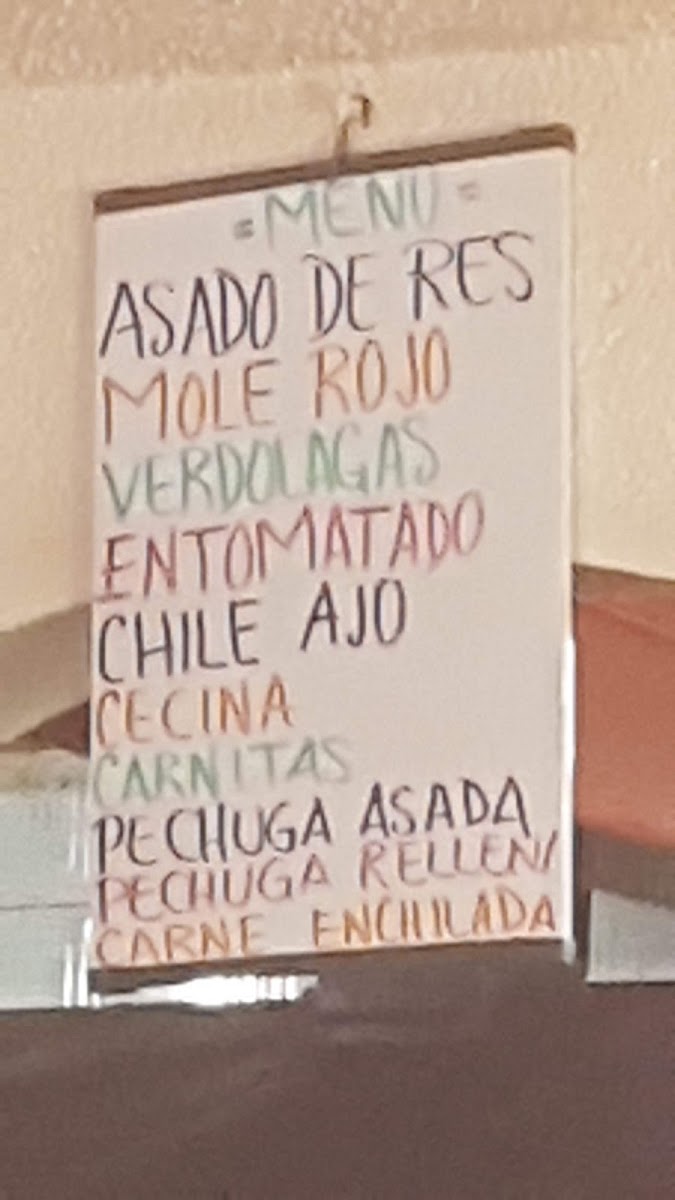 = MENU =
ASADO DE RES
MOLE ROJO
VERDOLAGAS
ENTOMATADO
CHILE AJO
CECINA
CARNITAS
PECHUGA ASADA
PECHUGA RELLENA
CARNE ENCHILADA